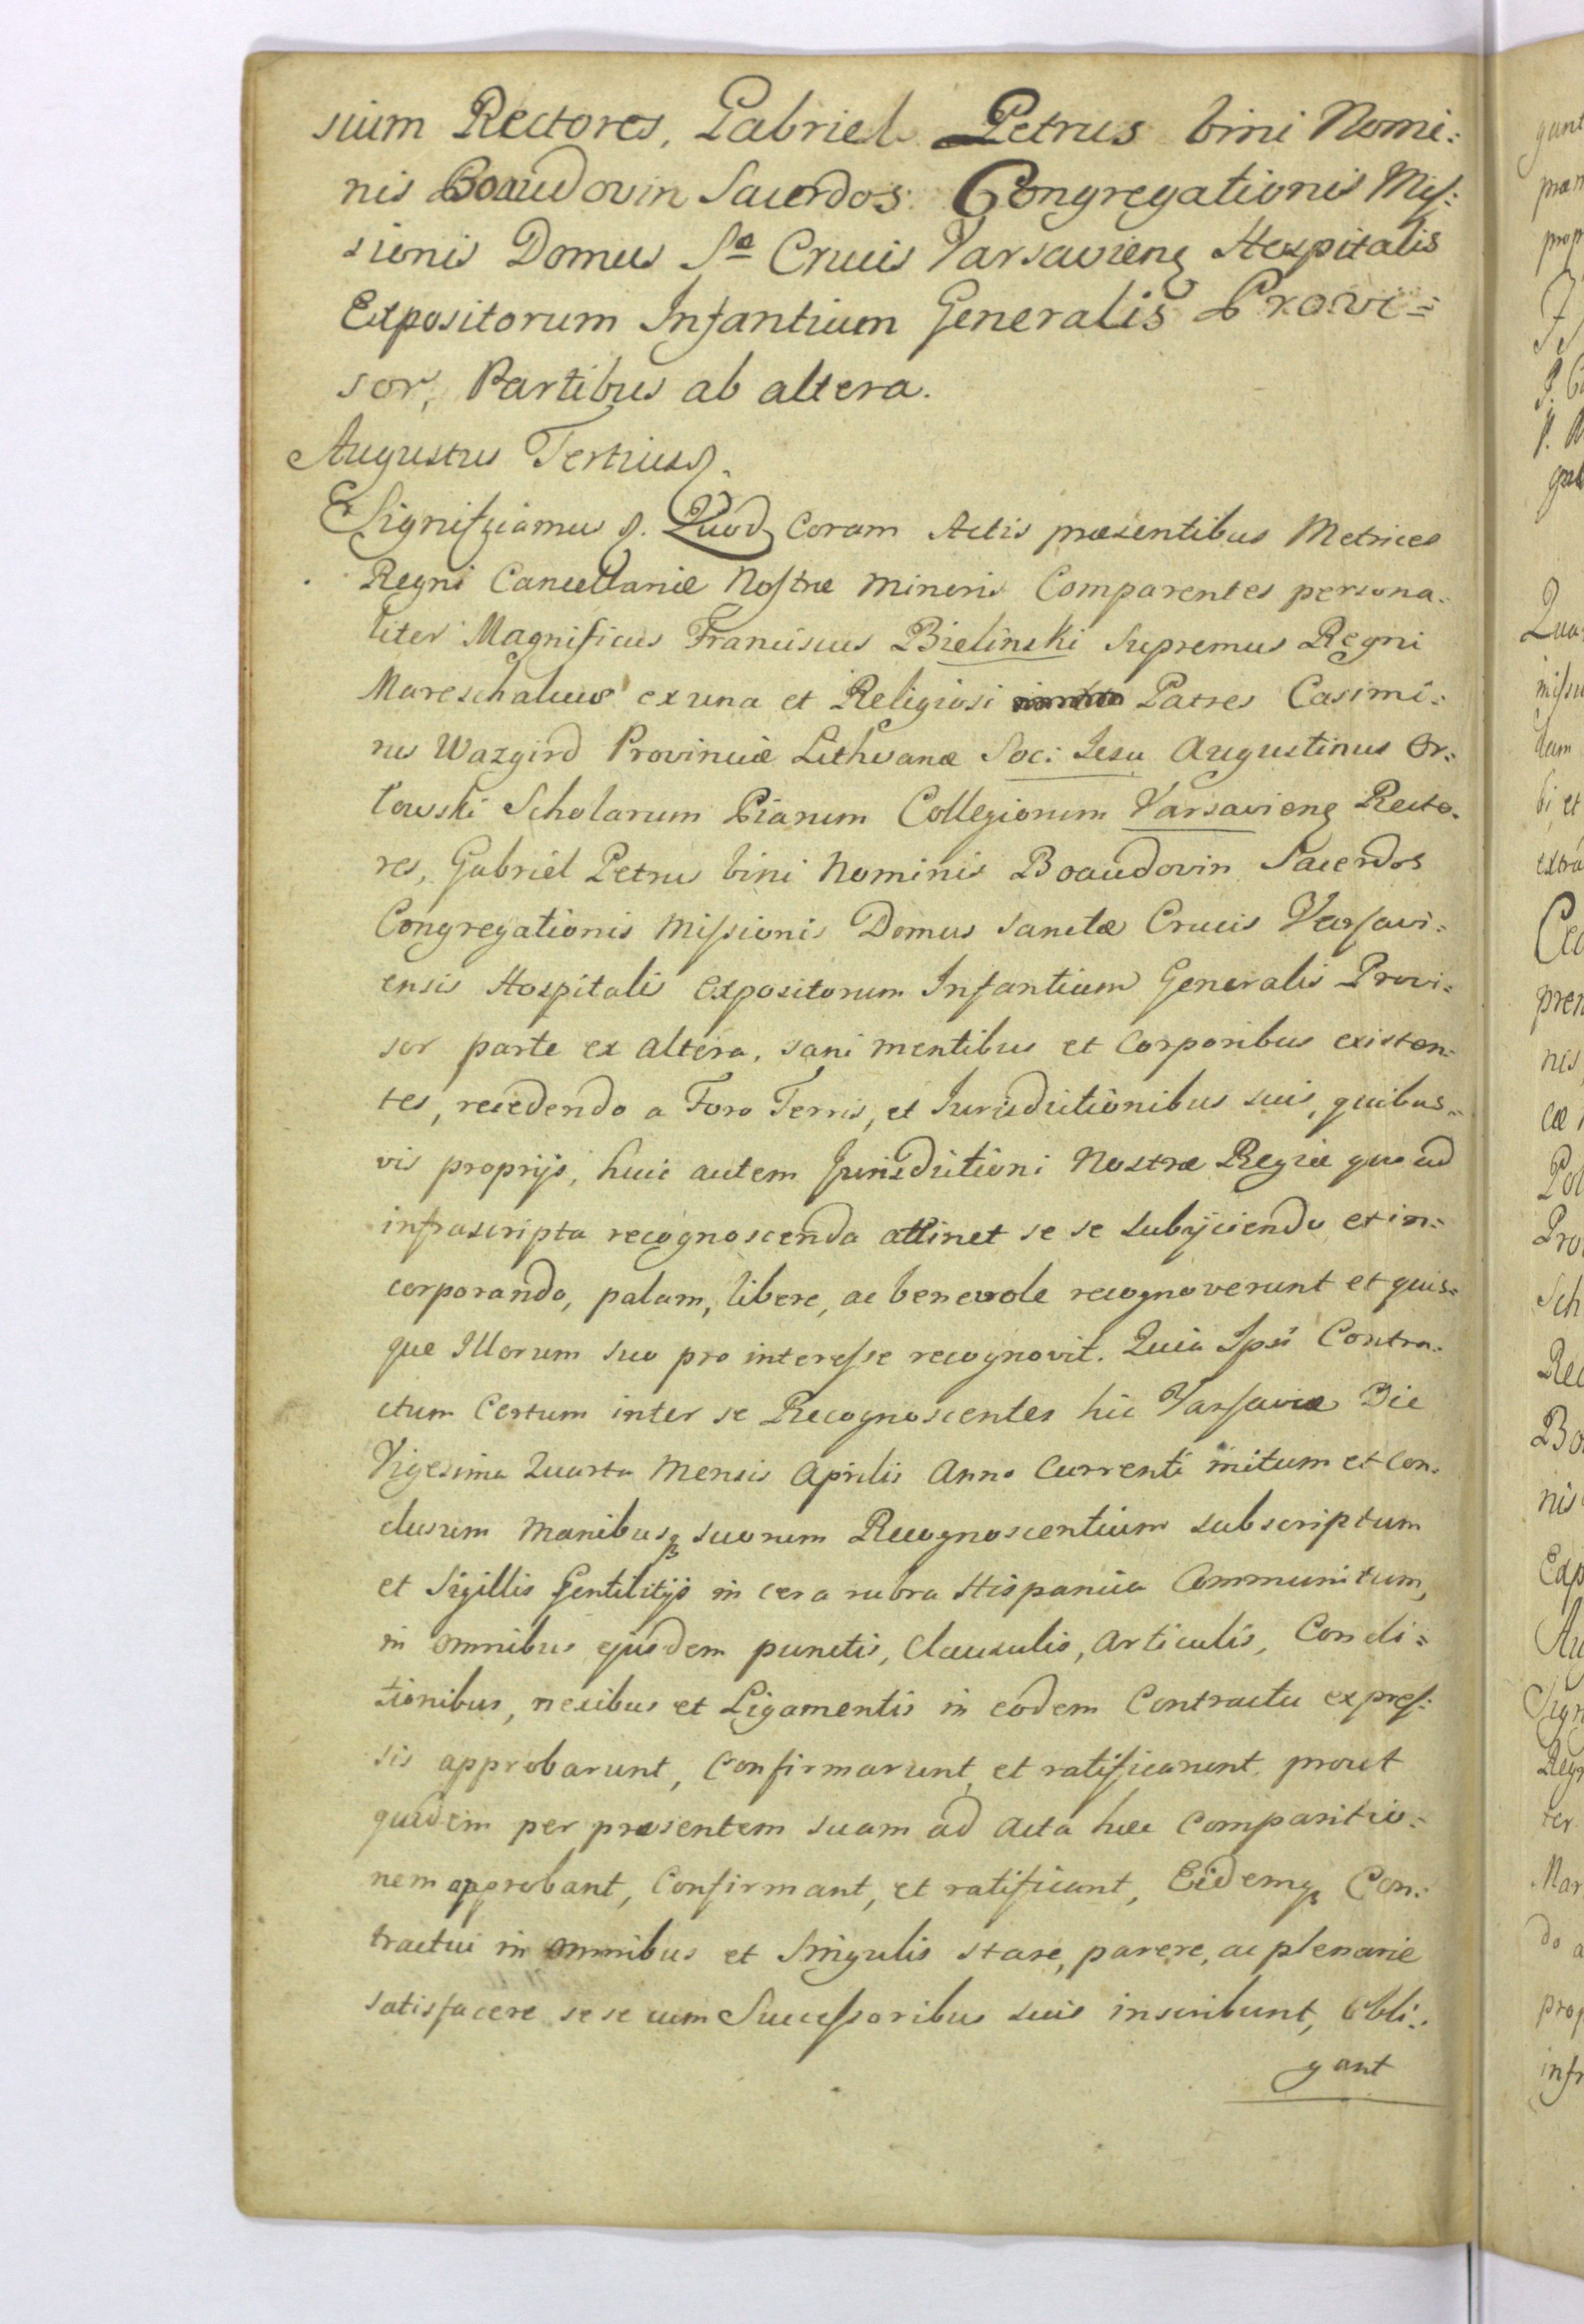 sium Rectores, Gabriel Petrus bini Nomi:
nis Boaudovin Sacerdos Congregationis Mis:
sionis Domus Sæ Crucis Varsavieng Hospitalis
Expositorum Infantium Generalis Provi=
sor, Partibus ab altera.
Augustus Tertius
Significamus Quod coram Actis præsentibus Metrices
Regni Cancellariæ Nostræ Minoris Comparentes persona:
liter Magnificus Franciscus Bielinski Supremus Regni
Mareschalcus ex una et Religiosi Patres Casimi:
rus Wazgird Provinciæ Lithvanæ Soc: Jesu Augustinus Or:
lowski Scholarum Piarum Collegiorum Varsavieng Recto.
res, Gabriel Petrus bini Nominis Boaudovin Sacerdos
Congregationis Missionis Domus Sanctæ Crucis Varsavi:
ensis Hospitalis Expositorum Infantium Generalis Provi:
sor parte ex altera, sani mentibus et Corporibus existen:
tes, recedendo a Foro Terris, et Jurisdictionibus suis, quibus=
vis proprijs, huic autem Jurisdictioni Nostræ Regiæ quoad
infrascripta recognoscenda attinet se se subijciendo et in=
corporando, palam, libere, ac benevole recognoverunt et quis=
que Illorum suo pro interesse recognovit. Quia Ipsi Contra:
ctum Certum inter se Recognoscentes hic Varsaviæ Die
Vigesima Quarta Mensis Aprilis Anno Currenti initum et con:
clusum Manibusq suorum Recognoscentium subscriptum
et Sigillis Gentilitijs in cera rubra Hispanica Communitum,
in omnibus ejusdem punctis, Clausulis, Articulis, Condi=
tionibus, nexibus et Ligamentis in eodem Contractu expres:
sis approbarunt, Confirmarunt, et ratificarunt, prout
quidem per præsentem suam ad Acta hæc Comparitio=
nem approbant, Confirmant, et ratificant, Eidemq Con:
tractui in omnibus et Singulis stare, parere, ac plenarie
satisfacere se se cum Successoribus suis inscribunt, Obli:
gant